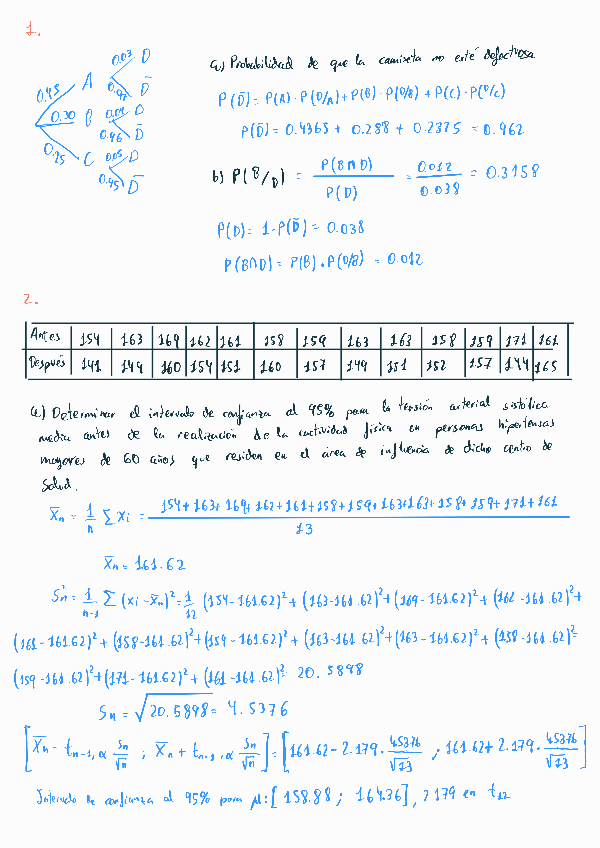 1.
0.45 A 0.03 D
0.97 D̄
0.30 B 0.04 D
0.96 D̄
0.25 C 0.05 D
0.95 D̄
a) Probabilidad de que la camiseta no esté defectuosa
P(D̄) = P(A) · P(D̄/A) + P(B) · P(D̄/B) + P(C) · P(D̄/C)
P(D̄) = 0.4365 + 0.288 + 0.2375 = 0.962
b) P(B/D) = P(B∩D) / P(D) = 0.012 / 0.038 = 0.3158
P(D) = 1 - P(D̄) = 0.038
P(B∩D) = P(B) · P(D/B) = 0.012
2.
Antes 154 163 169 162 161 158 159 163 163 158 159 171 161
Después 141 149 160 154 151 160 157 149 151 152 157 144 165
a) Determinar el intervalo de confianza al 95% para la tensión arterial sistólica
media antes de la realización de la actividad física en personas hipertensas
mayores de 60 años que residen en el área de influencia de dicho centro de
salud.
X̄n = 1/n ∑ xi = (154 + 163 + 169 + 162 + 161 + 158 + 159 + 163 + 163 + 158 + 159 + 171 + 161) / 13
X̄n = 161.62
Sn² = 1/(n-1) ∑ (xi - X̄n)² = 1/12 (154 - 161.62)² + (163 - 161.62)² + (169 - 161.62)² + (162 - 161.62)² +
(161 - 161.62)² + (158 - 161.62)² + (159 - 161.62)² + (163 - 161.62)² + (163 - 161.62)² + (158 - 161.62)² =
(159 - 161.62)² + (171 - 161.62)² + (161 - 161.62)² = 20.5898
Sn = √20.5898 = 4.5376
[X̄n - t n-1, α Sn/√n ; X̄n + t n-1, α Sn/√n] = [161.62 - 2.179 · 4.5376/√13 ; 161.62 + 2.179 · 4.5376/√13]
Intervalo de confianza al 95% para μ: [158.88 ; 164.36], 2.179 en t12